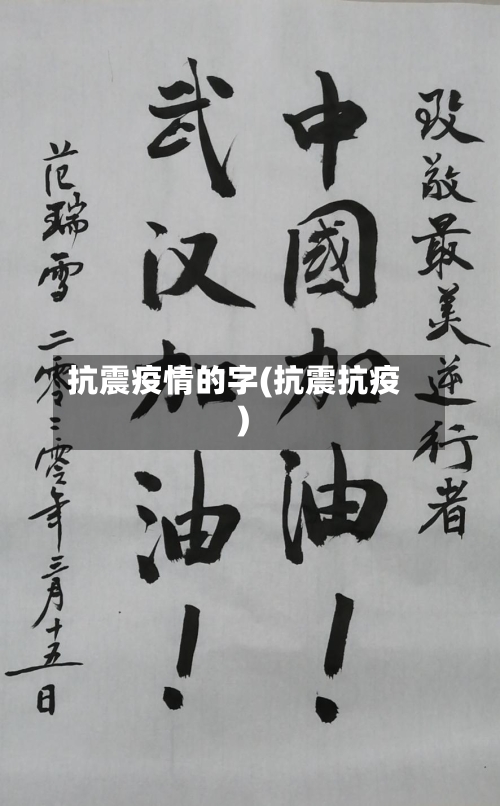 致敬最美逆行者
中國加油！
武汉加油！
范瑞雪二零二零年三月十五日
抗震疫情的字(抗震抗疫
)